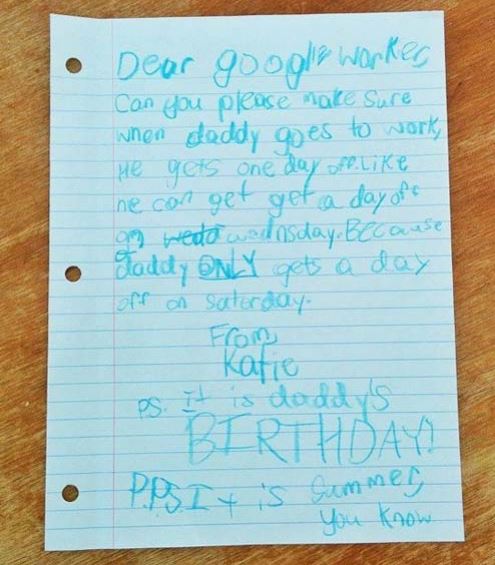 Dear google worker,
Can you please make sure
when daddy goes to work,
He gets one day off. Like
he can get get a day off
on wednsday. BECause
daddy ONLY gets a day
off on saterday.
From,
Katie
P.S. It is daddy's
BIRTHDAY!
P.P.S. It is summer,
you know